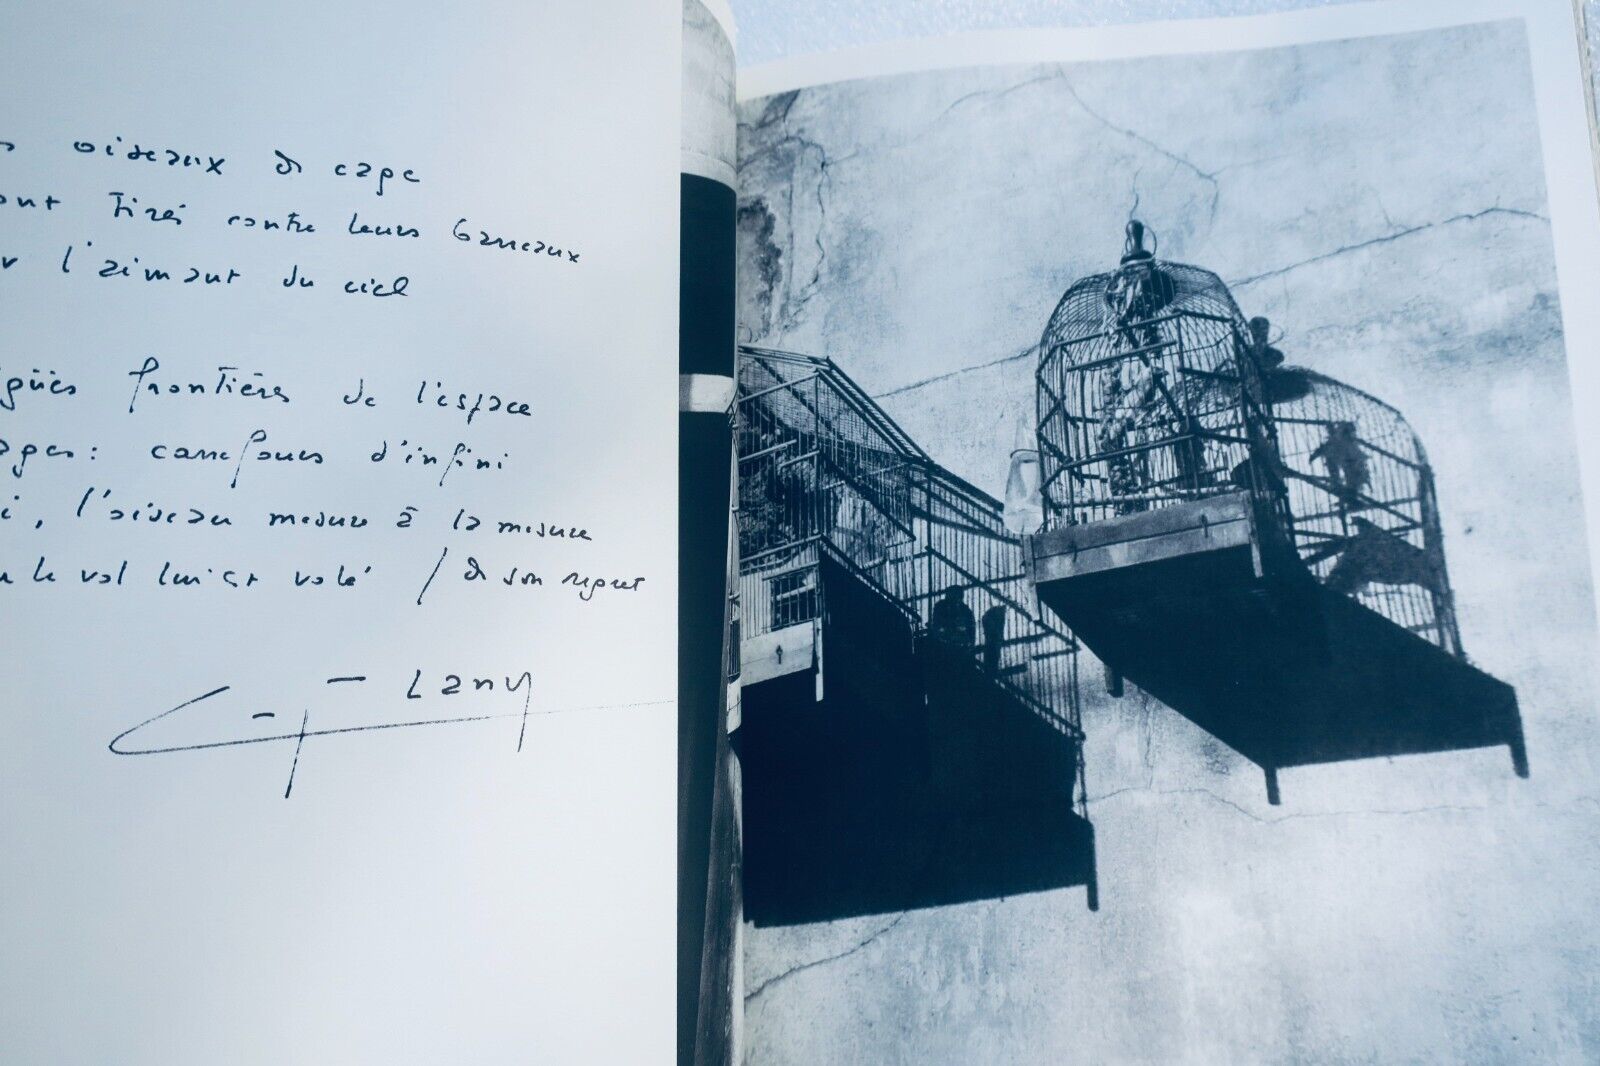 oiseaux de cage
ont tirés contre leurs barreaux
l'aimant du ciel
frontières de l'espace
ages: carrefours d'infini
i, l'oiseau mesure à la mesure
le vol lui est volé / de son regret
Lany